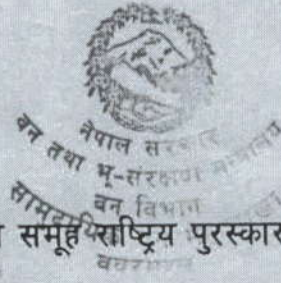 नेपाल सरकार
वन तथा भू-संरक्षण मन्त्रालय
वन विभाग
समूह राष्ट्रिय पुरस्कार